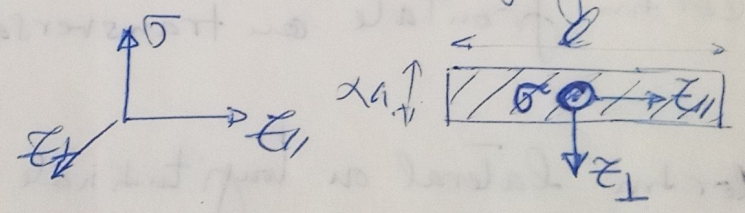 σ
τ⊥
τ//
ℓ
αa
σ
τ//
τ⊥